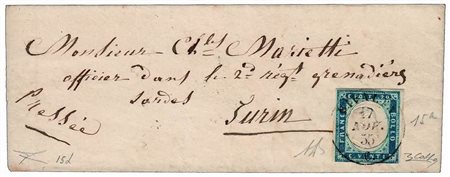 Monsieur Ch.les Marietti
officier dans le 2d régt grenadiers
sardes
Pressée
Turin
FRANCO BOLLO
27
55
15d
15a